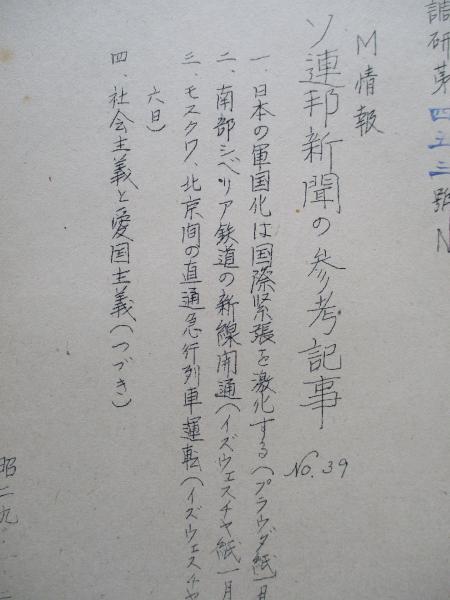 調研第四三三號N
M情報
ソ連邦新聞の参考記事
No.39
一、日本の軍国化は国際緊張を激化する(プラウダ紙一月
二、南部シベリア鉄道の新線開通(イズウェスチヤ紙一月
三、モスクワ、北京間の直通急行列車運転(イズウェスチヤ
六日)
四、社会主義と愛国主義(つづき)
昭二九、